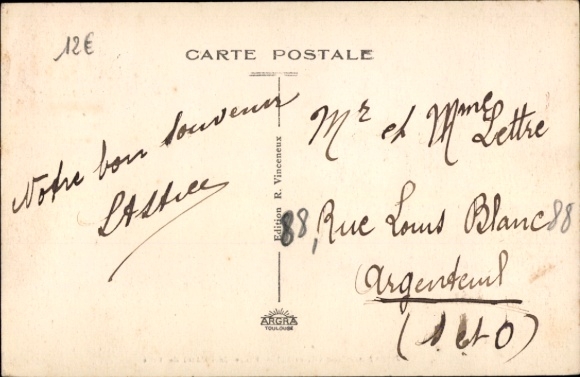 12€
CARTE POSTALE
Notre bon souvenir
Edition R. Vinceneux
Mr et Mme Lettre
88, Rue Louis Blanc 88
Argenteuil
(S et O)
ARGRA
TOULOUSE